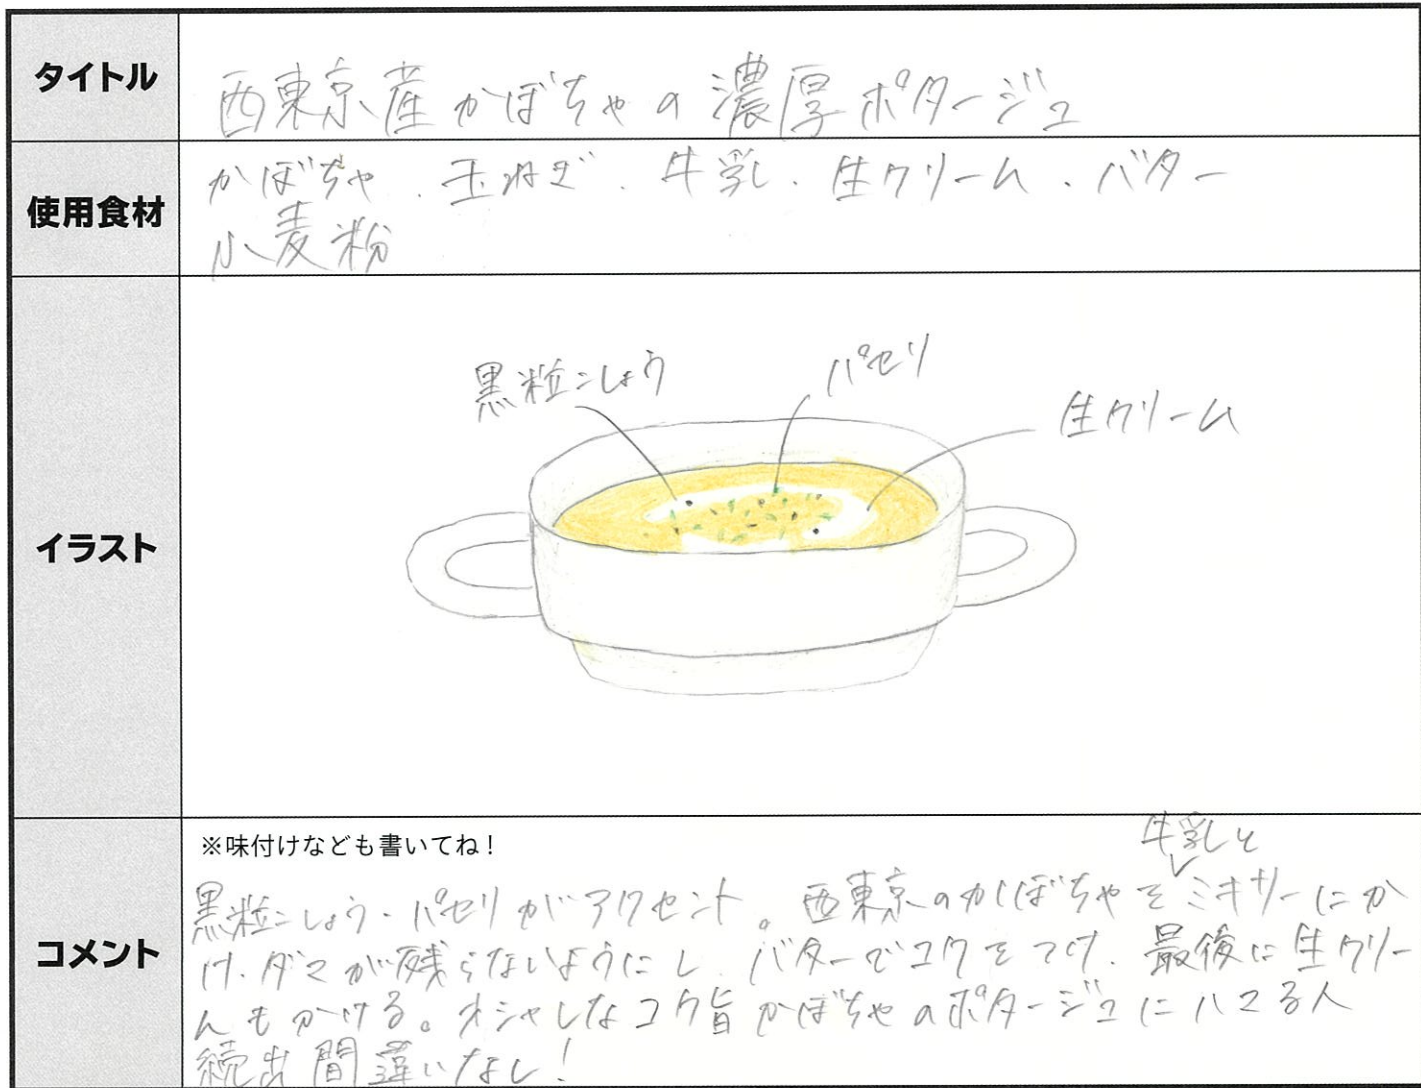 タイトル
西東京産かぼちゃの濃厚ポタージュ
使用食材
かぼちゃ、玉ねぎ、牛乳、生クリーム、バター
小麦粉
イラスト
黒粒こしょう
パセリ
生クリーム
コメント
※味付けなども書いてね!
牛乳と
黒粒こしょう・パセリがアクセント。西東京のかぼちゃをミキサーにか
け、ダマが残らないようにし、バターでコクをつけ、最後に生クリー
ムもかける。オシャレなコク旨かぼちゃのポタージュにハマる人
続出間違いなし!